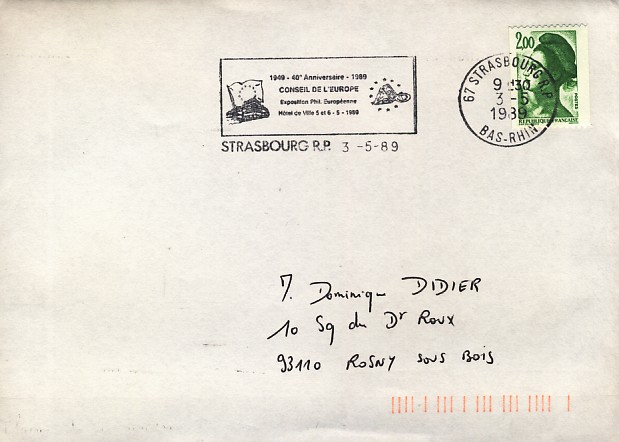 1949 - 40° Anniversaire - 1989
CONSEIL DE L'EUROPE
Exposition Phil. Européenne
Hôtel de Ville 5 et 6 - 5 - 1989
STRASBOURG R.P. 3 -5-89
67 STRASBOURG R.P.
9 H30
3 -5
1989
BAS-RHIN
2,00
POSTES
REPUBLIQUE FRANÇAISE
M. Dominique DIDIER
10 Sq du Dr Roux
93110 ROSNY SOUS BOIS